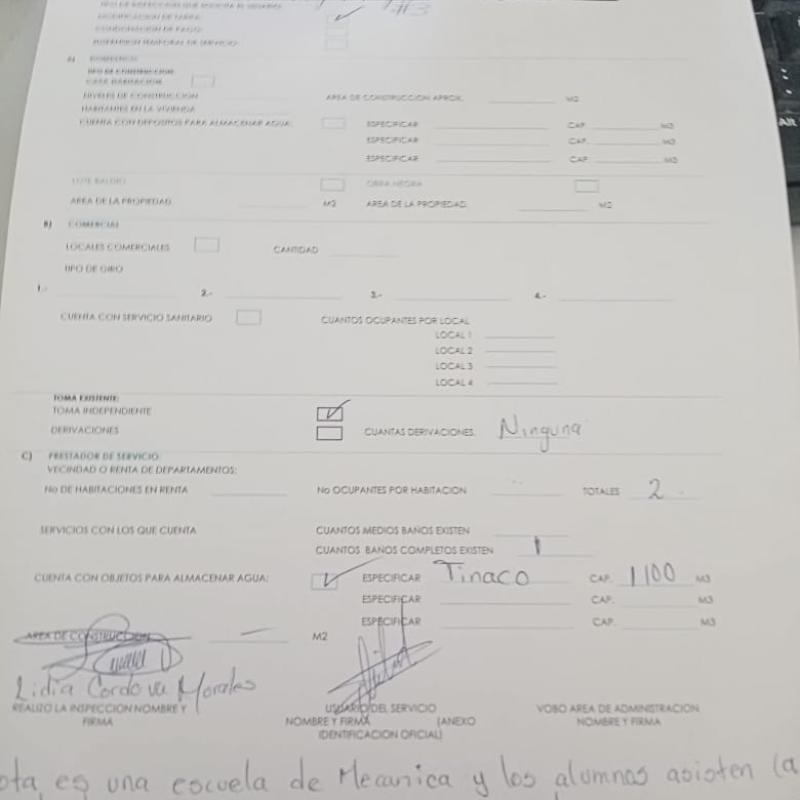 TIPO DE INSPECCION QUE SOLICITA EL USUARIO: #3
MODIFICACION DE TARIFA:
CONDONACION DE PAGO:
SUSPENSION TEMPORAL DE SERVICIO:
A) DOMESTICO:
TIPO DE CONSTRUCCION:
CASA HABITACION
NIVELES DE CONSTRUCCION AREA DE CONSTRUCCION APROX. M2
HABITANTES EN LA VIVIENDA
CUENTA CON DEPOSITOS PARA ALMACENAR AGUA: ESPECIFICAR CAP. M3
ESPECIFICAR CAP. M3
ESPECIFICAR CAP M3
LOTE BALDIO OBRA NEGRA
AREA DE LA PROPIEDAD M2 AREA DE LA PROPIEDAD. M2
B) COMERCIAL
LOCALES COMERCIALES CANTIDAD
TIPO DE GIRO
1.- 2.- 3.- 4.-
CUENTA CON SERVICIO SANITARIO CUANTOS OCUPANTES POR LOCAL
LOCAL 1
LOCAL 2
LOCAL 3
LOCAL 4
TOMA EXISTENTE:
TOMA INDEPENDIENTE
DERIVACIONES CUANTAS DERIVACIONES. Ninguna
C) PRESTADOR DE SERVICIO:
VECINDAD O RENTA DE DEPARTAMENTOS:
No DE HABITACIONES EN RENTA No OCUPANTES POR HABITACION TOTALES 2
SERVICIOS CON LOS QUE CUENTA CUANTOS MEDIOS BAÑOS EXISTEN
CUANTOS BAÑOS COMPLETOS EXISTEN 1
CUENTA CON OBJETOS PARA ALMACENAR AGUA: ESPECIFICAR Tinaco CAP. 1100 M3
ESPECIFICAR CAP. M3
ESPECIFICAR CAP. M3
AREA DE CONSTRUCCION M2
Lidia Cordova Morales
REALIZO LA INSPECCION NOMBRE Y FIRMA
USUARIO DEL SERVICIO NOMBRE Y FIRMA (ANEXO IDENTIFICACION OFICIAL)
VOBO AREA DE ADMINISTRACION NOMBRE Y FIRMA
ota es una escuela de Mecanica y los alumnos asisten (a
Alt